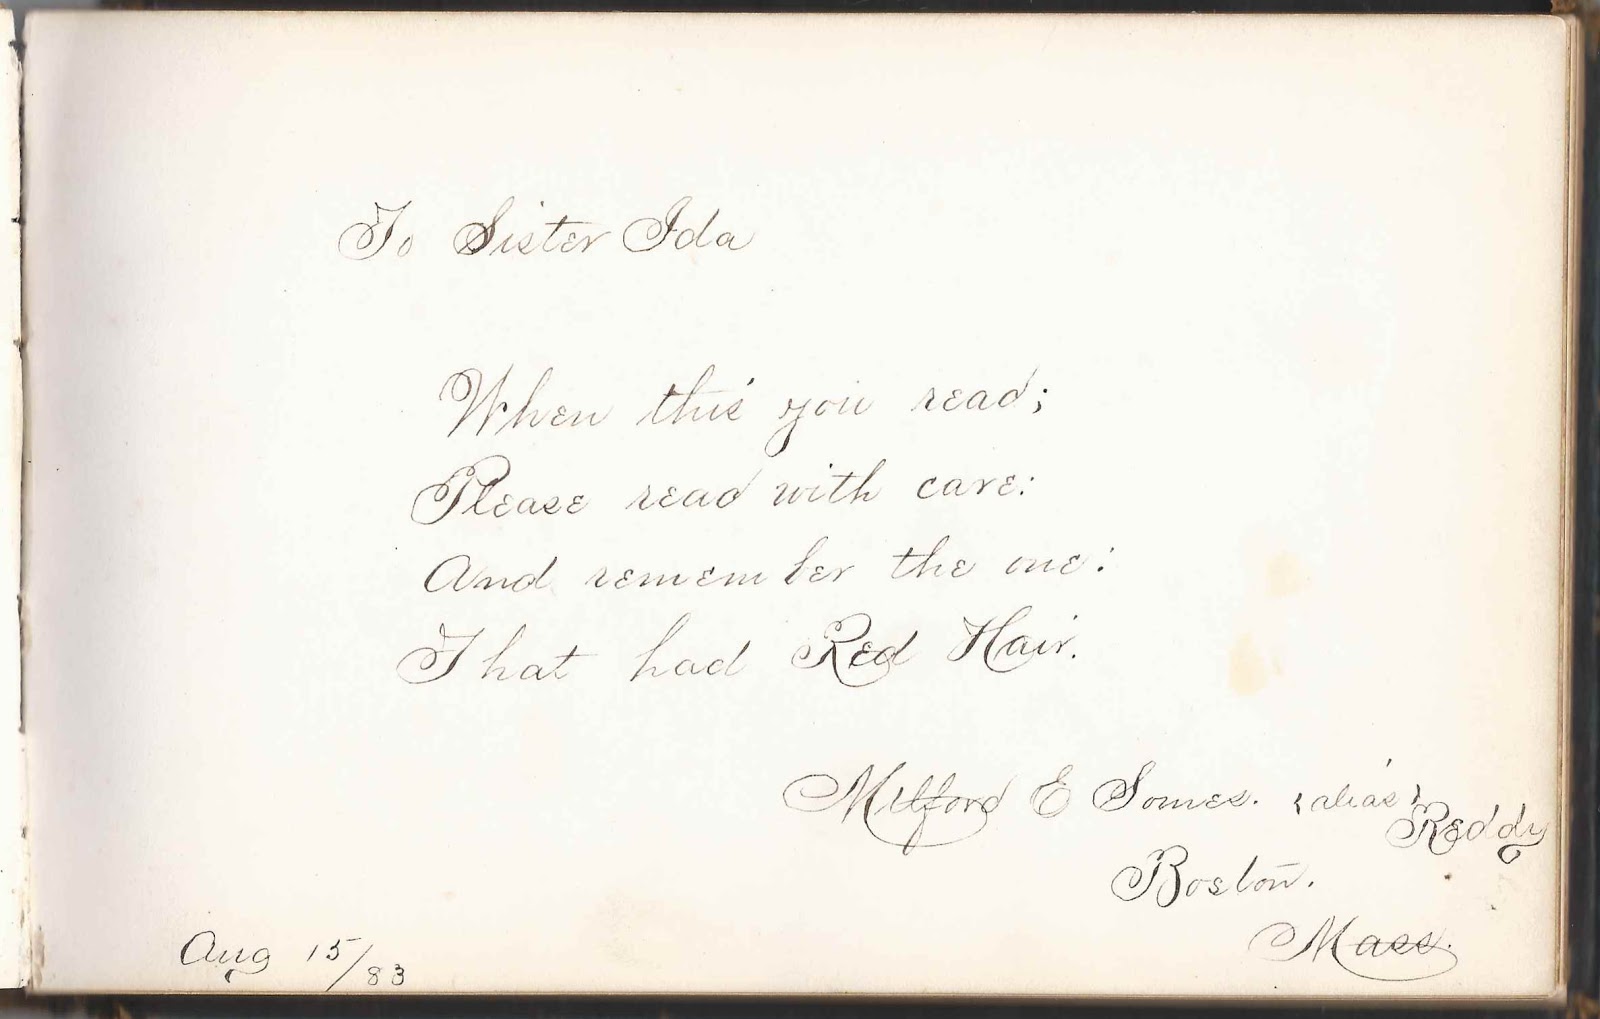 To Sister Ida
When this you read;
Please read with care:
And remember the one:
That had Red Hair.
Milford E Somes. (alias)
Reddy
Boston.
Mass.
Aug 15/83